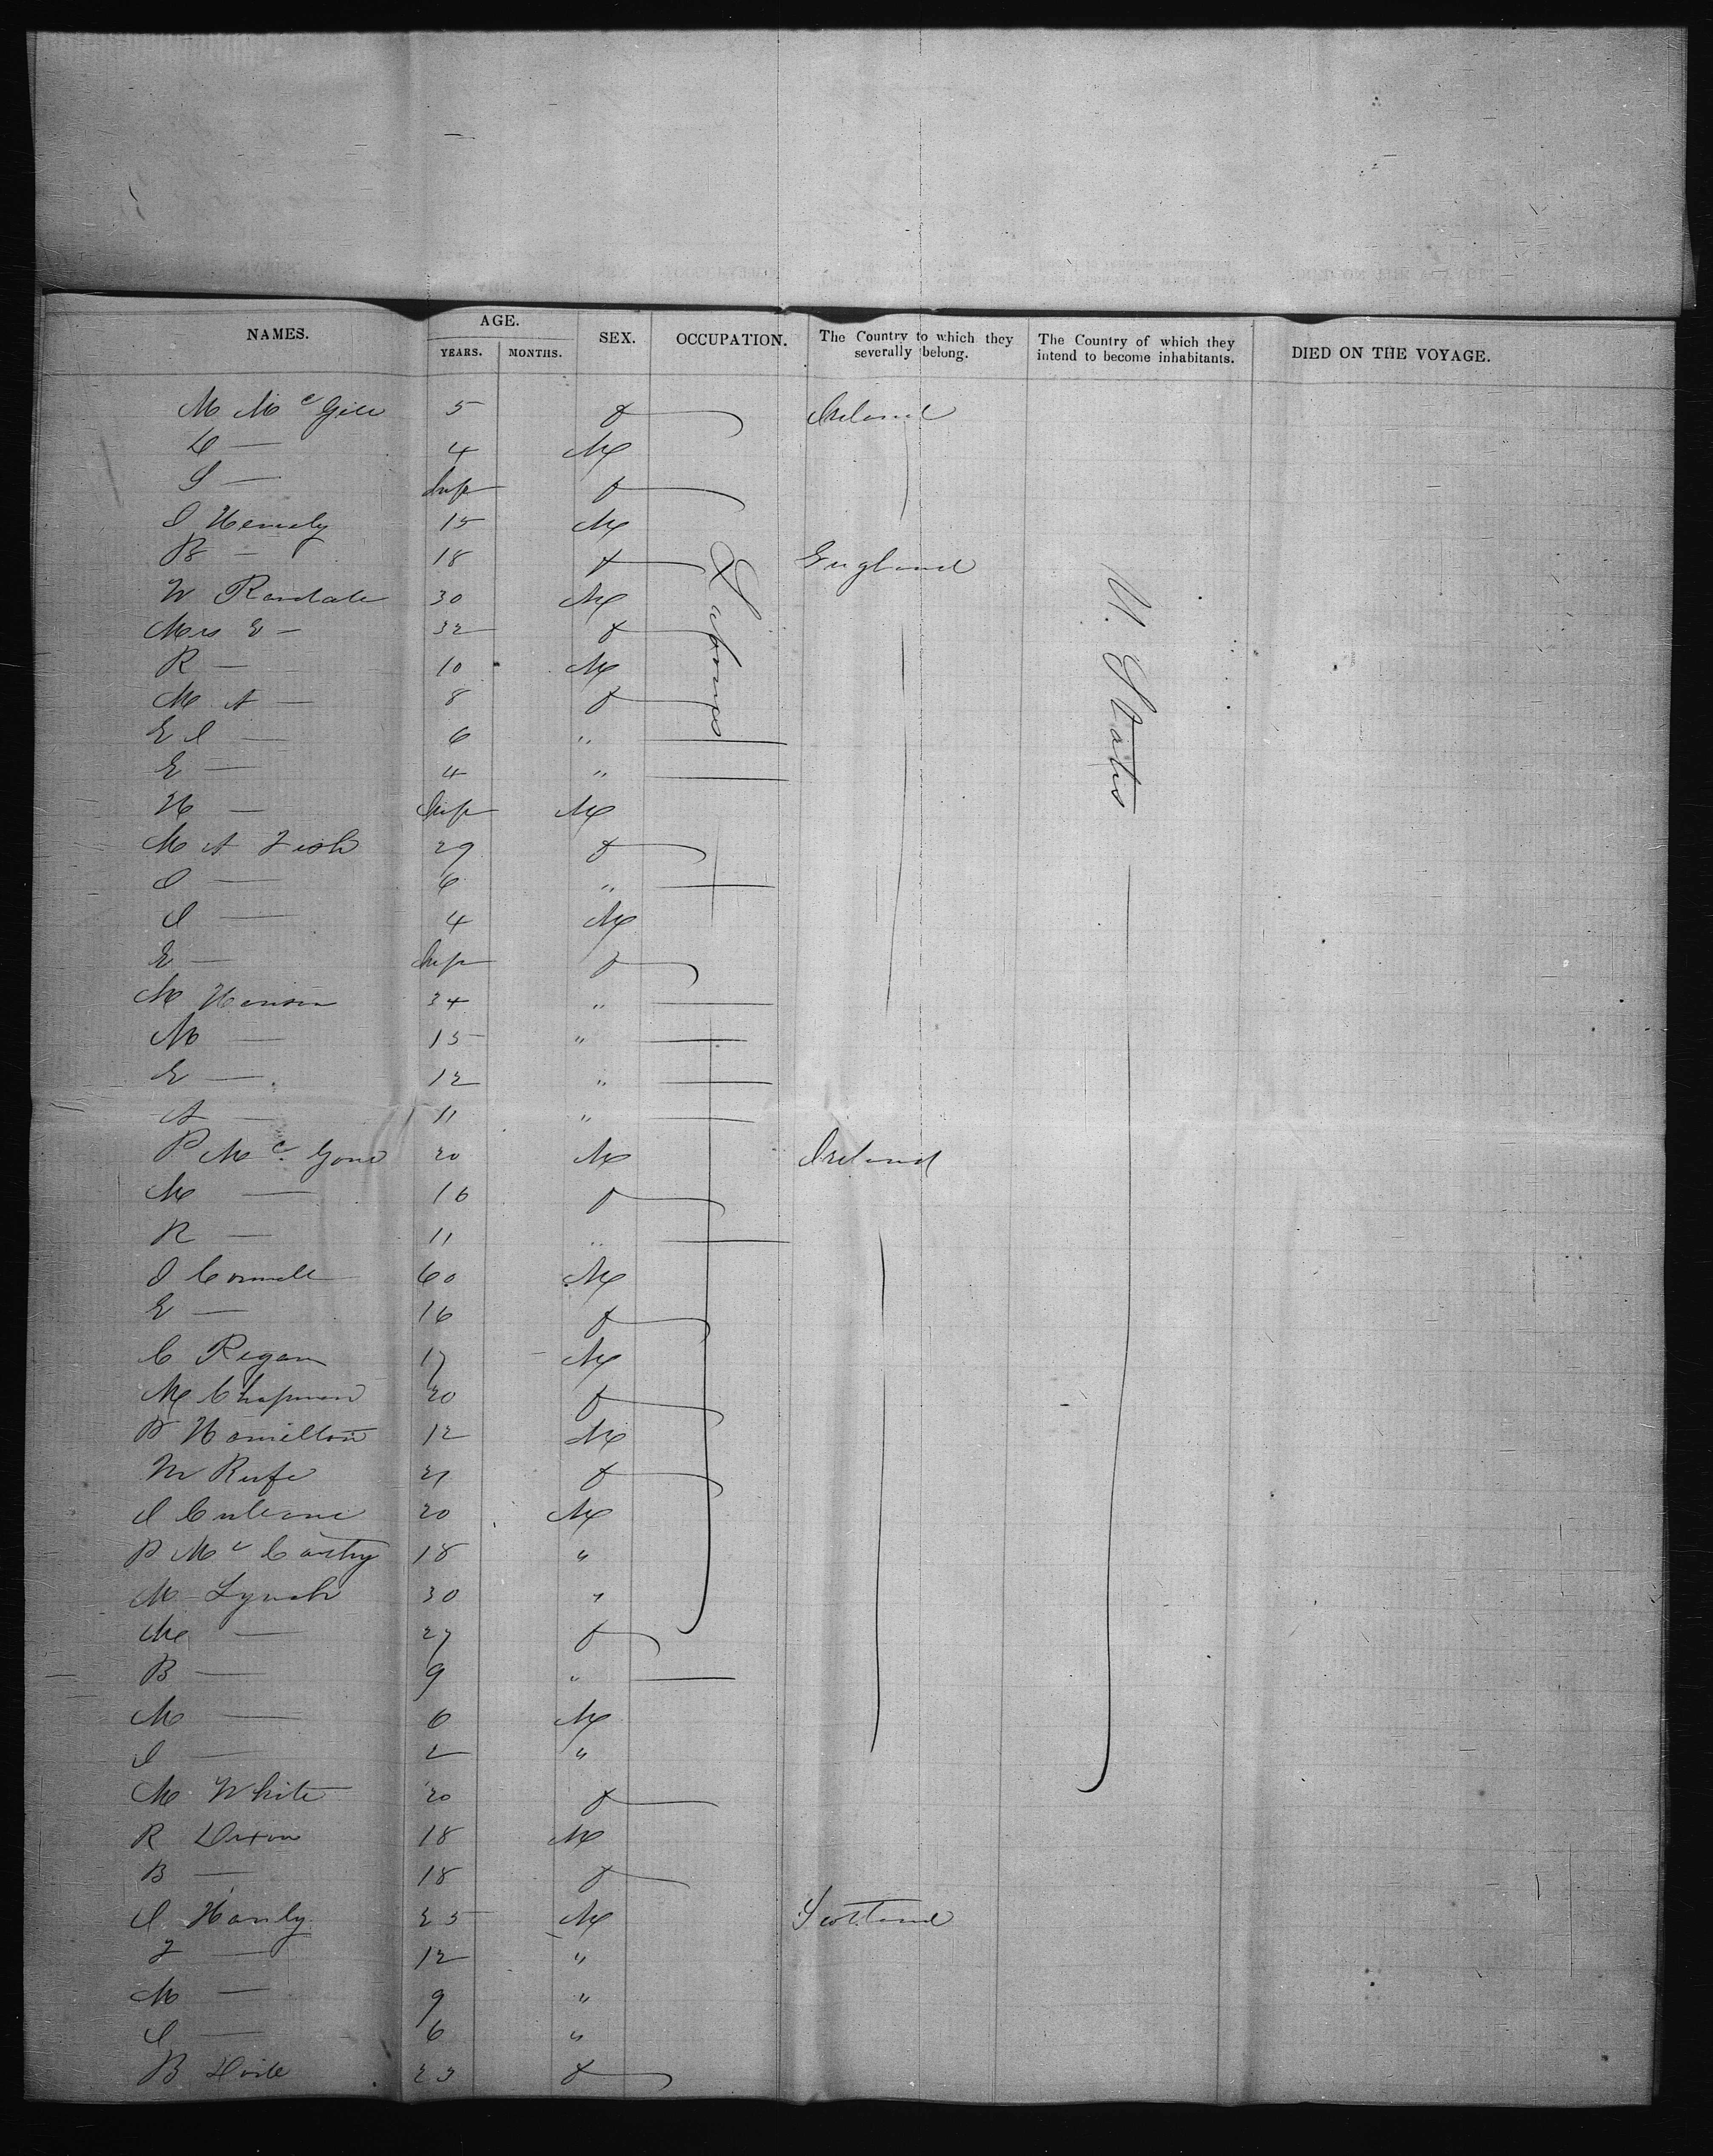 NAMES. AGE. SEX. OCCUPATION. The Country to which they severally belong. The Country of which they intend to become inhabitants. DIED ON THE VOYAGE.
YEARS. MONTHS.
M McGill 5 f Ireland
4 M
S — Inft f
J 15 M
B — 18 f England
W Randale 30 M
Mrs E — 32 f
R — 10 M
M A — 8 f
E J — 6 "
E — 4 "
H — Inft M
M A Fish 29 f
J — 6 "
J — 4 M
E — Inft f
M Hanson 34 "
M — 15 "
E — 12 "
A — 11 "
P Mc. 20 M Ireland
M — 16 f
R — 11 "
J 60 M
E — 16 f
C Regan 17 M
M Chapman 20 f
B Hamilton 12 M
M 21 f
J 20 M
P McCarthy 18 "
M Lynch 30 "
M — 27 f
B — 9 "
M — 6 M
J — 2 "
M White 20 f
R Dixon 18 M
B — 18 f
J Hanly 25 M Scotland
F — 12 "
M — 9 "
J — 6 "
B 23 f
Labourers
U. States